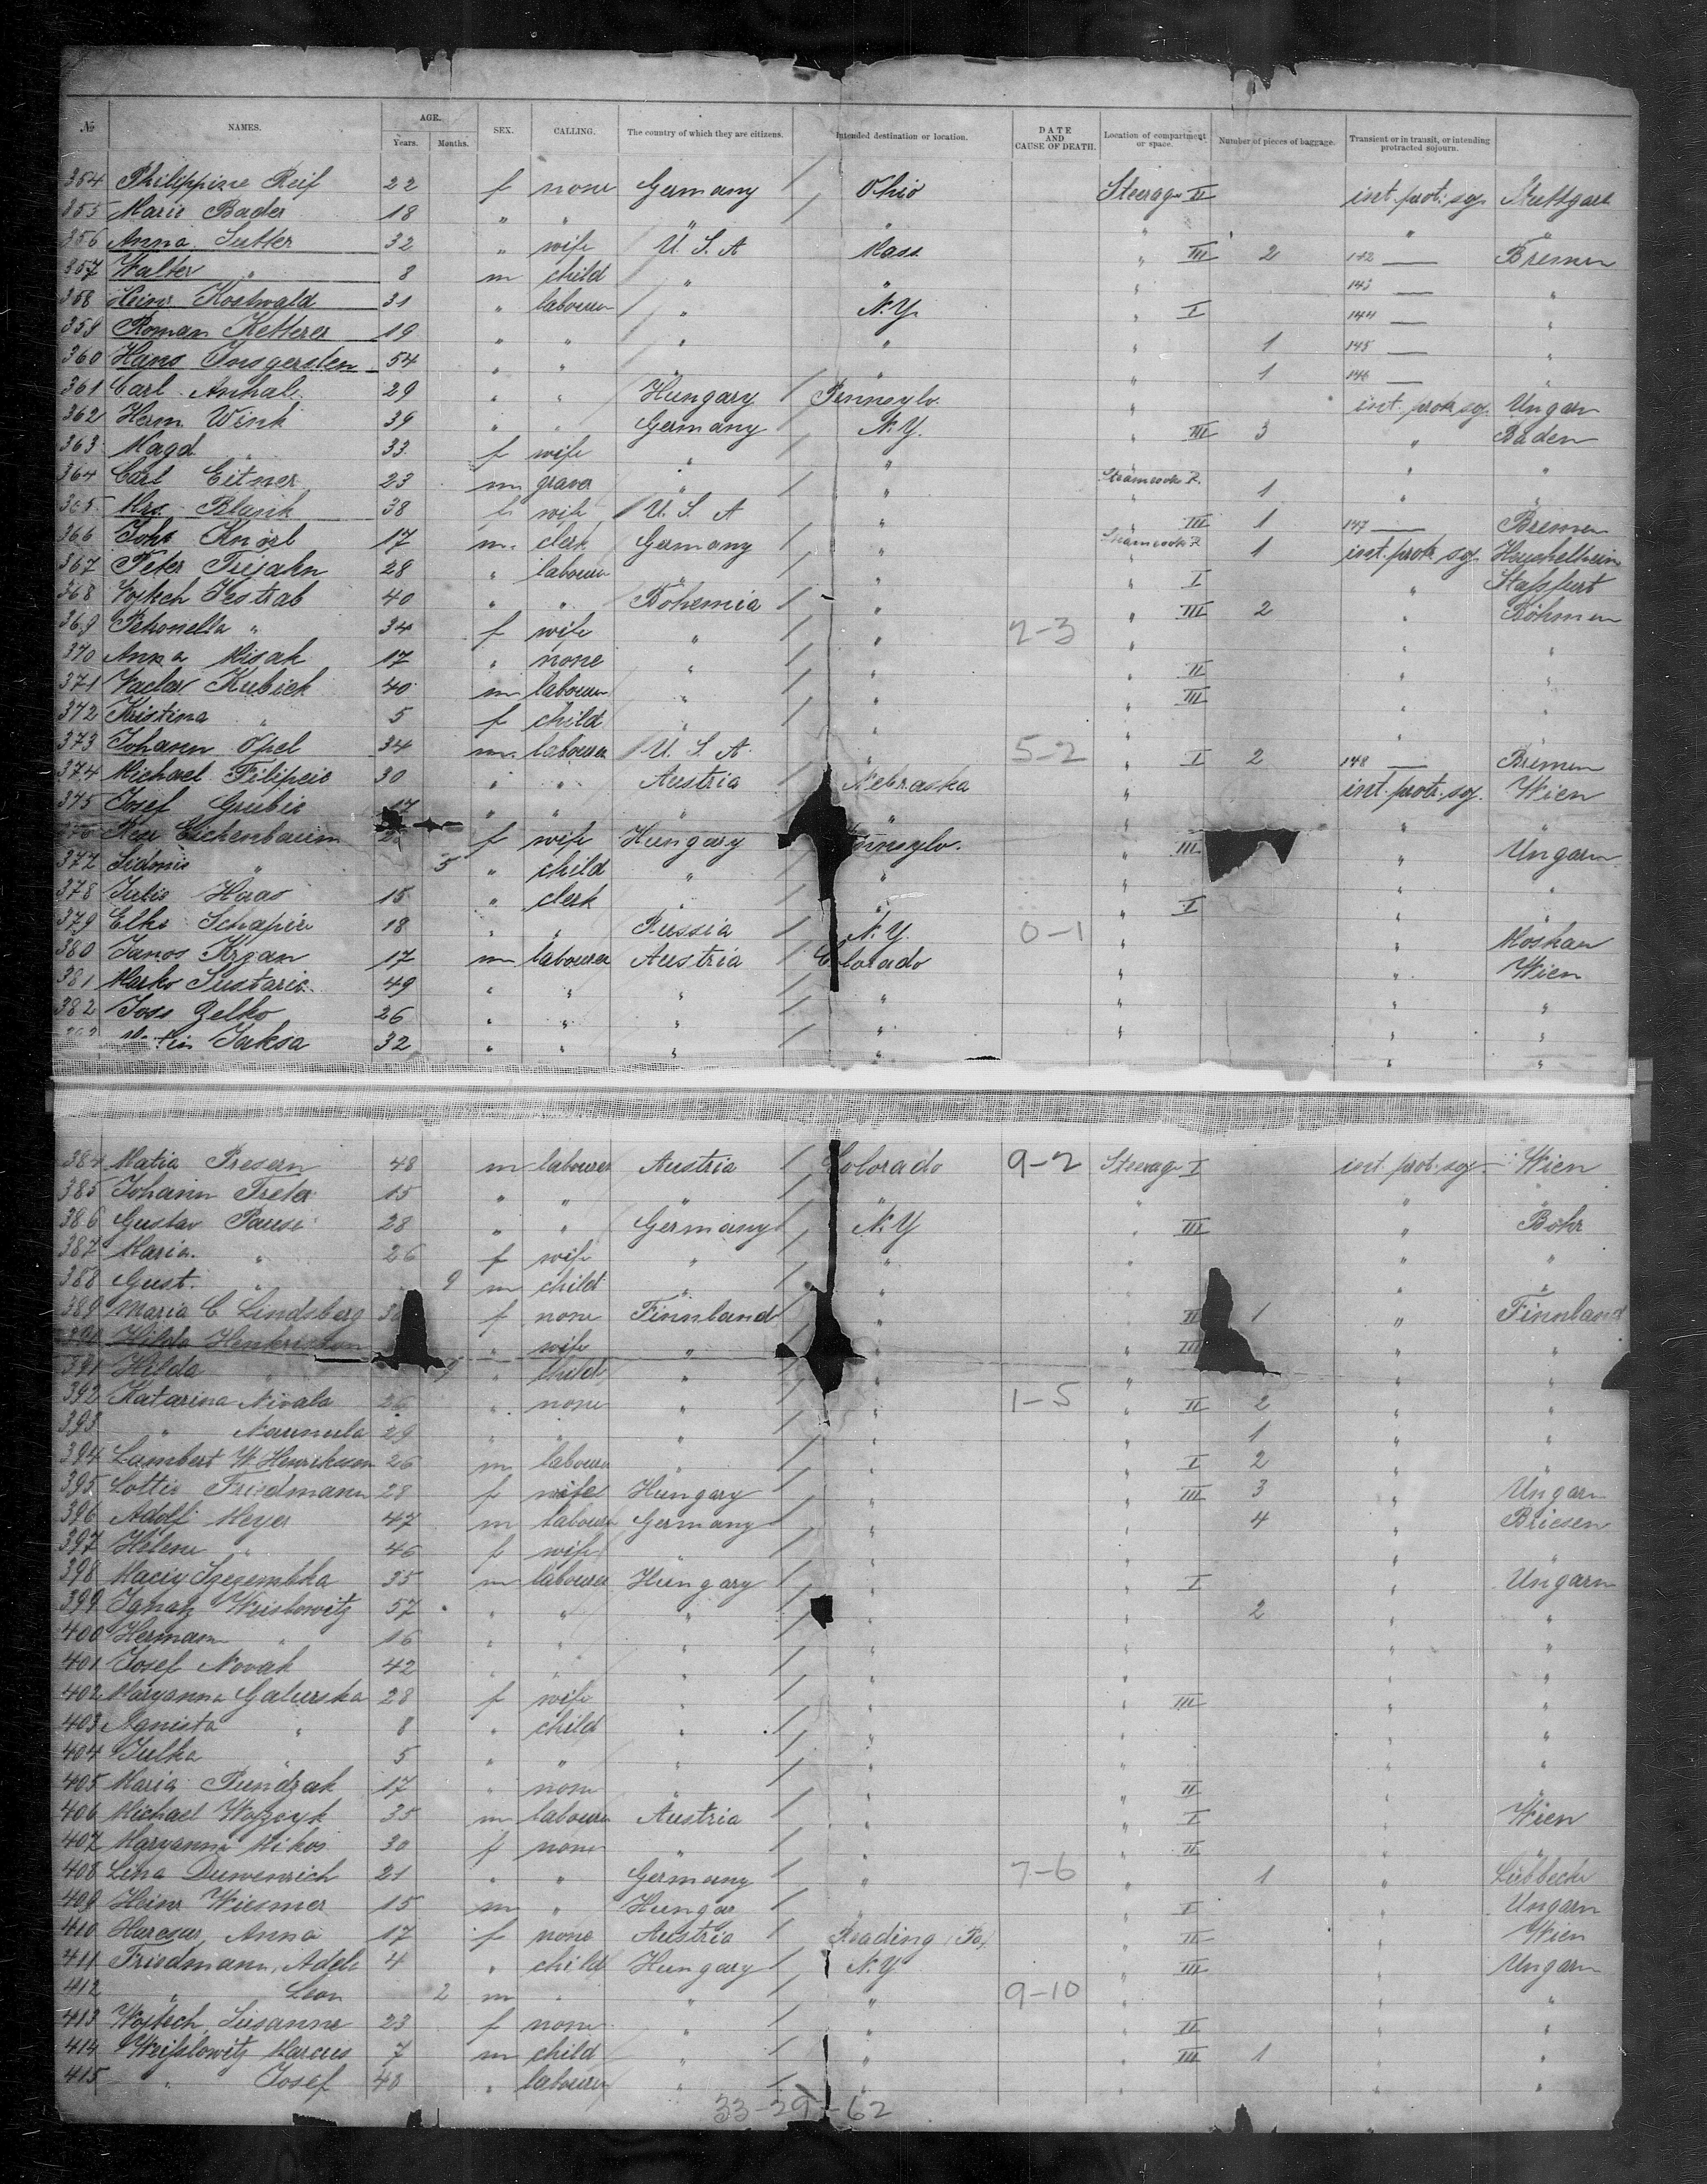 № NAMES. AGE. Years. Months. SEX. CALLING. The country of which they are citizens. Intended destination or location. DATE AND CAUSE OF DEATH. Location of compartment or space. Number of pieces of baggage. Transient or in transit, or intending protracted sojourn.
354 Philippine Reif 22 f none Germany Ohio Steerage II int. prot. soj. Stuttgart
355 Marie Bader 18 " " " " " " "
356 Anna Sutter 32 " wife U. S. A Mass " III 2 142 — Bremen
357 Walter " 8 m child " " " 143 — "
358 Heinr Kostwald 31 " labourer " N.Y. " I 144 — "
359 Roman Ketterer 19 " " " " " 1 145 — "
360 Hans Ingersten 54 " " " " " 1 146 — "
361 Carl 29 " " Hungary Pennsylv. " int. prot. soj. Ungarn
362 Herm. Wink 39 " " Germany N.Y. " III 3 " Baden
363 Magd. " 33 f wife " " " " "
364 Carl Eitner 23 m graver " " 1 " "
365 Mrs. Blank 38 f wife U. S. A " " III 1 147 — Bremen
366 Joh. Knörl 17 m. clerk Germany " 1 int. prot. soj.
367 Peter Tiejahn 28 " labourer " " " I " Stassfurt
368 Vojtech Kestrab 40 " " Bohemia " " III 2 " Böhmen
369 Petronella " 34 f wife " " 2-3 " " "
370 Anna Misak 17 " none " " " II " "
371 Vaclav Kubick 40 m labourer " " " III " "
372 Kristina " 5 f child " " " " "
373 Johann Opel 34 m. labourer U. S. A " 5-2 " I 2 148 — Bremen
374 Michael Filipcic 30 " " Austria Nebraska " int. prot. soj. Wien
375 Josef Grubic 17 " " " " " " "
Eichenbaum f wife Hungary Pennsylv. " III " Ungarn
377 Sidonie " 5 " child " " " " "
378 Julis Haas 15 " clerk " " " I " "
379 Elke Schapiro 18 " " Russia N.Y. 0-1 " " Moskau
380 Janos Krzan 17 m labourer Austria Colorado " " Wien
381 Marko Sustaric 49 " " " " " " "
382 Joss Zelko 26 " " " " " " "
Jaksa 32 " " " " " "
384 Matia Presern 48 m labourer Austria Colorado 9-2 Steerage I int. prot. soj. Wien
385 Johann Treter 15 " " " " " " "
386 Gustav Pause 28 " " Germany N.Y " III " Bohr
387 Maria " 26 f wife " " " " "
388 Gust. " 9 m child " " " "
389 Maria C. Lindsberg f none Finnland " II 1 " Finnland
390 Hilda " wife " " " III " "
391 Hilda " " child " " " " "
392 Katarina Nivala 26 " none " " 1-5 " II 2 " "
393 " 29 " " " " " 1 " "
394 Lambert W. Henriksson 26 m labourer " " " I 2 " "
395 Lottie Friedmann 28 f wife Hungary " " III 3 " Ungarn
396 Adolf Meyer 47 m labourer Germany " " 4 " Briesen
397 Helene " 46 f wife " " " " "
398 Maciy 35 m labourer Hungary " " I " Ungarn
399 Ignatz Weislowitz 57 " " " " " 2 " "
400 Hermann " 16 " " " " " " "
401 Josef Novak 42 " " " " " " "
402 Maryanna Galurska 28 f wife " " " III " "
403 Agnista " 8 " child " " " " "
404 Julka " 5 " " " " " " "
405 Maria Pundzak 17 " none " " " II " "
406 Michael Wojzcyk 35 m labourer Austria " " I " Wien
407 Maryanna Mikos 30 f none " " " II " "
408 Lina Duwenrich 21 " " Germany " 7-6 " 1 " Lübbecke
409 Heinr Wiesmer 15 m " Hungar " " I " Ungarn
410 Anna 17 f none Austria Reading (Pa) " II " Wien
411 Friedmann, Adele 4 " child Hungary N.Y " III " Ungarn
412 " Leon 2 m " " " 9-10 " " "
413 Wojtech, Susanne 23 f none " " " II " "
414 Weisslowitz Marcus 7 m child " " " III 1 " "
415 " Josef 48 " labourer " " " " "
33-29-62